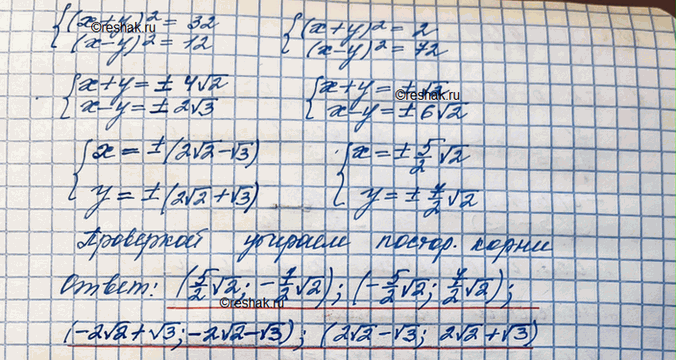 {(x+y)² = 32 {(x+y)² = 2
(x-y)² = 12 (x-y)² = 72
©reshak.ru
{x+y = ± 4√2 {x+y = ±√2
x-y = ± 2√3 x-y = ±6√2
©reshak.ru
{x = ±(2√2-√3) {x = ± 5/2 √2
y = ±(2√2+√3) y = ± 7/2 √2
Проверкой убираем постор. корни
Ответ: (5/2 √2; -7/2 √2); (-5/2 √2; 7/2 √2);
©reshak.ru
(-2√2+√3; -2√2-√3); (2√2-√3; 2√2+√3)